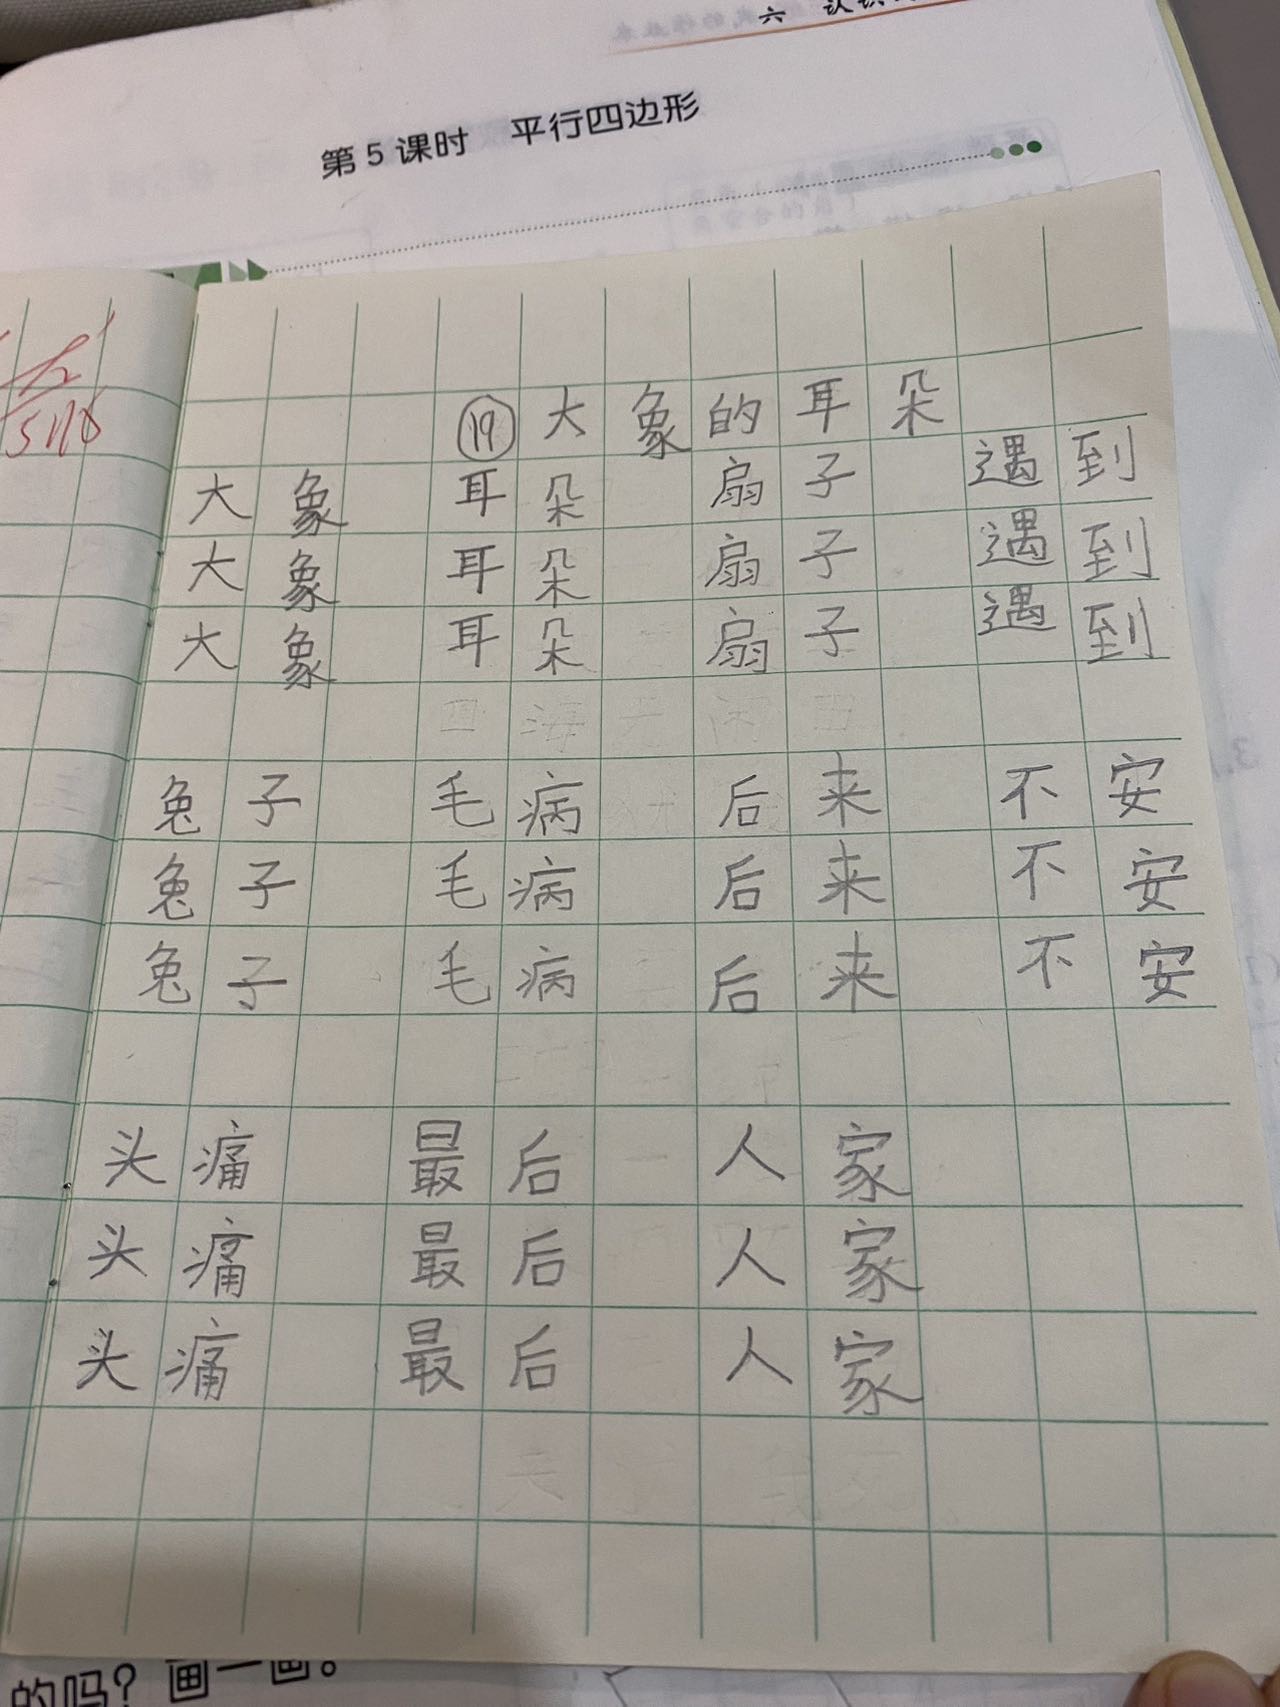 第5课时 平行四边形
⑲大象的耳朵
大象 耳朵 扇子 遇到
大象 耳朵 扇子 遇到
大象 耳朵 扇子 遇到
兔子 毛病 后来 不安
兔子 毛病 后来 不安
兔子 毛病 后来 不安
头痛 最后 人家
头痛 最后 人家
头痛 最后 人家
的吗？画一画。